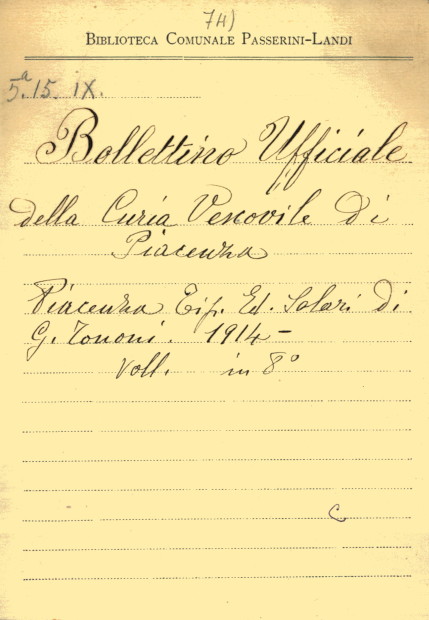 74)
BIBLIOTECA COMUNALE PASSERINI-LANDI
5.ª 15. IX.
Bollettino Ufficiale
della Curia Vescovile di
Piacenza
Piacenza Tip. Ed. Solari di
G. Tononi. 1914-
voll. in 8°
C